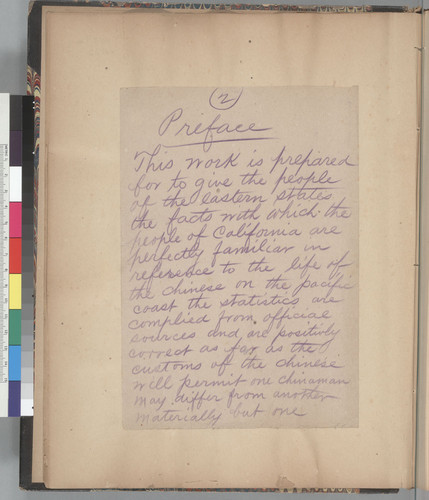 (2)
Preface
This work is prepared
for to give the people
of the eastern states
the facts with which the
people of California are
perfectly familiar in
reference to the life of
the chinese on the pacific
coast the statistics are
complied from official
sources and are positively
correct as far as the
customs of the chinese
will permit one chinaman
may differ from another
materially but one